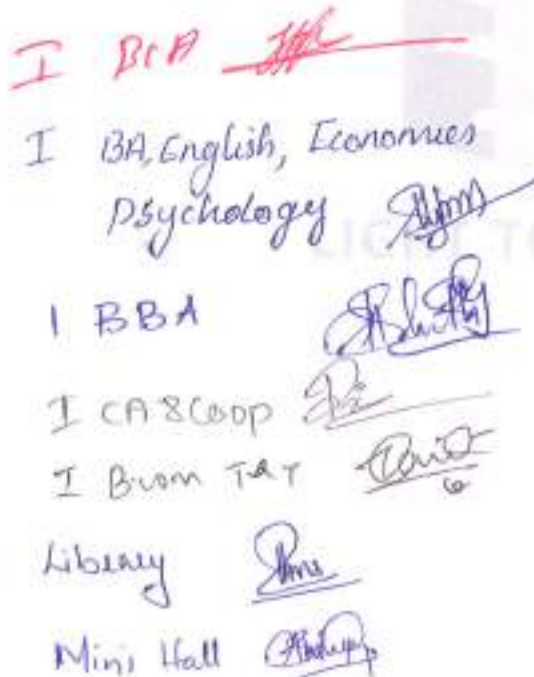 I BCA
I BA, English, Economics
Psychology
LIGHT TO
I BBA
I CA & Coop
I B.com T&T
Liberary
Mini Hall